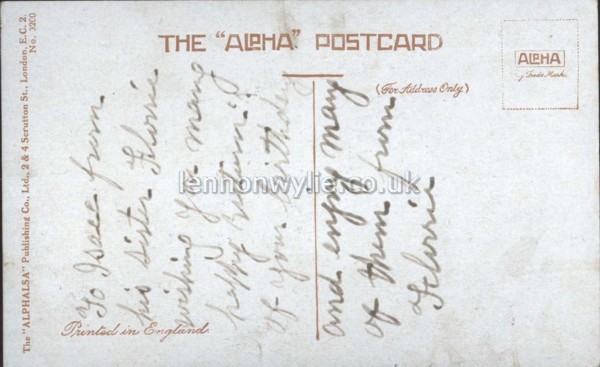 THE "ALPHA" POSTCARD
ALPHA
Trade Mark.
(For Address Only)
To Isaac from
his sister Florrie
wishing you many
happy Returns
of your birthday
and enjoy many
of them from
Florrie
Printed in England.
The "ALPHALSA" Publishing Co., Ltd., 2 & 4 Scrutton St., London, E.C. 2.
No. 3200
lennonwylie.co.uk